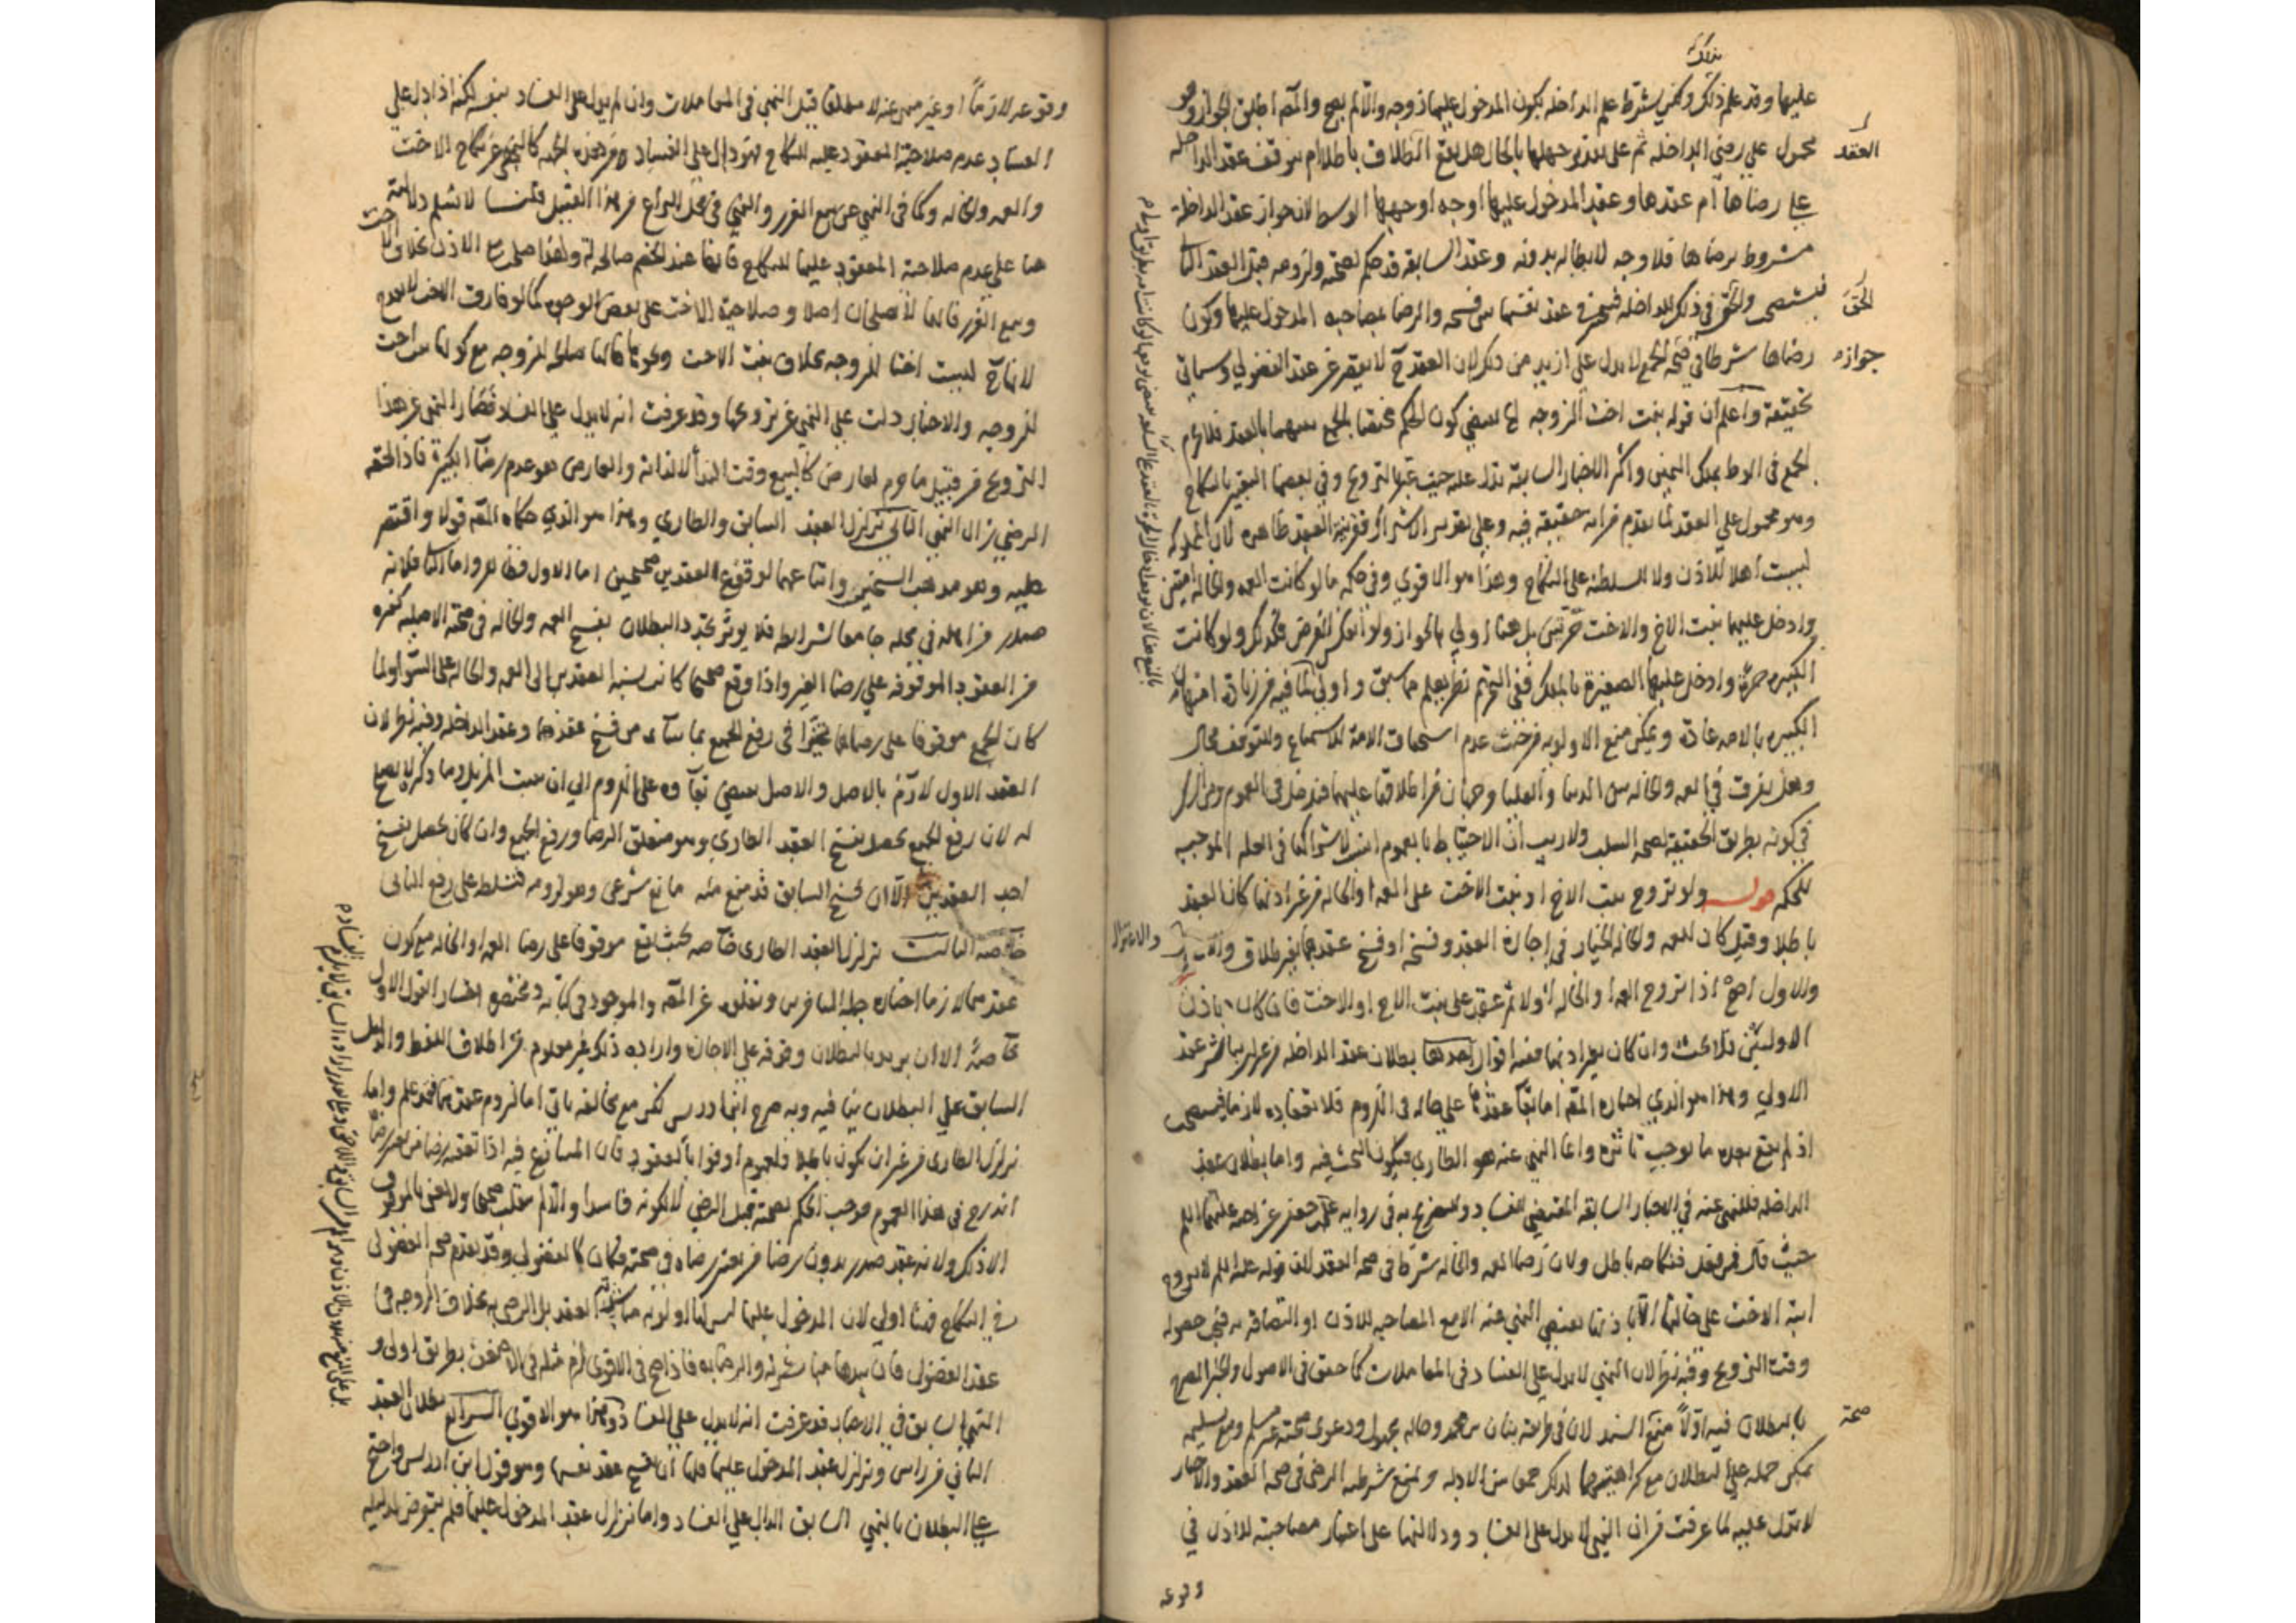 عليها وقد علم ذلك ولكن يشترط علم الداخلة بكون المدخول عليها زوجه والا لم يصح والمصـ اطلق الجواز وهو
محمول على رضى الداخله ثم على تقدير جهلها بالحال هل يقع الطلاق باطلا ام يتوقف عقد الداخله
على رضاها ام عقدها وعقد المدخول عليها اوجه اوجهها الوسط لان جواز عقد الداخلة
مشروط برضاها فلا وجه لابطاله بدونه وعقد السابقه قد حكم بصحته ولزومه قبل العقد الثا
فيستصحب والحق في ذلك للداخله فتتخير في عقد نفسها بين فسخه والرضا بمصاحبه المدخول عليها وكون
رضاها شرطا في صحة الجمع لا يدل على ازيد من ذلك لان العقد ح لا يقصر عن عقد الفضولي وسياتي
تحقيقه واعلم ان قوله بنت اخت الزوجه الخ يقتضي كون الحكم مختصا بالجمع بينهما بالعقد فلا يحرم
الجمع في الوطئ بملك اليمين واكثر الاخبار السابقه تدل عليه حيث عبر بالتزويج وفي بعضها التعبير بالنكاح
وهو محمول على العقد لما تقدم من انه حقيقه فيه وعلى تقدير الاشتراك فقرينة العقد ظاهره لان المملوكه
ليست اهلا للاذن ولا السلطنه على النكاح وهذا هو الاقوى وفي حكمه ما لو كانت العمه والخاله امتين
وادخل عليهما بنت الاخ والاخت حرتين بل هنا اولى بالجواز ولو انعكس الفرض فكذلك ولو كانت
الكبيره حره وادخل عليها الصغيرة بالملك ففي التحريم نظر يعلم مما سبق واولى لما فيه من زيادة امتهان
الكبيره بالامه عادة ويمكن منع الاولويه من حيث عدم استحقاق الامة للاستمتاع وللتوقف مجال
وهل يفرق في العمه والخاله بين الدنيا والعليا وجهان من اطلاقها عليهما فيدخل في العموم ومن الشك
في كونه بطريق الحقيقه لصحه السلب ولا ريب ان الاحتياط بالعموم انسب لاشتراكها في العله الموجبه
للحكم قوله ولو تزوج بنت الاخ او بنت الاخت على العمه او الخاله من غير اذنهما كان العقد
باطلا وقيل كان للعمه والخاله الخيار في اجازة العقد وفسخه او فسخ عقدهما بغير طلاق
والاول اصح اذا تزوج العمه او الخاله اولا ثم عقد على بنت الاخ او الاخت فان كان باذن
الاوليين فلا بحث وان كان بغير اذنهما ففيه اقوال احدها بطلان عقد الداخله من غير ان يتاثر عقد
الاولى وهذا هو الذي اختاره المصـ اما بقا عقدها على حاله في اللزوم فلانعقاده لازما فيستصحب
اذ لم يقع بعده ما يوجب تاثره وانما المنهي عنه هو الطاري فيكون البحث فيه واما بطلان عقد
الداخله فللنهي عنه في الاخبار السابقه المقتضي للفساد وللتصريح به في روايه علي بن جعفر عن اخيه عليهما السلم
حيث قال فمن فعل فنكاحه باطل ولان رضا العمه والخاله شرط في صحه العقد لان قوله عليه السلم لا تزوج
ابنة الاخت على خالتها الا باذنها يقتضي النهي عنه الا مع المصاحبه للاذن او التصاقه به فينبغي حصوله
وقت التزويج وفيه نظر لان النهي لا يدل على الفساد في المعاملات كما حقق في الاصول والخبر المصرح
بالبطلان فيه اولا منع السند لان في طريقه بنان بن محمد وحاله مجهول ودعوى صحته غير مسلم ومع تسليمه
يمكن حمله على البطلان مع كراهتهما لذلك جمعا بين الادله ونمنع شرطيه الرضى في صحه العقد والاخبار
لا تدل عليه لما عرفت من ان النهي لا يدل على الفساد ودلالتها على اعتبار مصاحبته للاذن في
وقوعه
العقد
الحق
جوازه
صحة
وقوعه لازما او غير منهي عنه لا مطلقا قيل النهي في المعاملات وان لم يدل على الفساد بنفسه لكنه اذا دل على
الفساد عدم صلاحية المعقود عليه للنكاح فهو دال على الفساد من هذه الجهه كالنهي عن نكاح الاخت
والعمه والخاله وكما في النهي عن بيع الغرر والنهي في محل النزاع من هذا القبيل قلنا لا نسلم دلالته
هنا على عدم صلاحية المعقود عليها للنكاح فانها عند الخصم صالحه له ولهذا صلح مع الاذن بخلاف الاخت
وبيع الغرر فانهما لا يصلحان اصلا وصلاحية الاخت على بعض الوجوه كما لو فارق الاخت لا يقدح
لانها ح ليست اختا للزوجه بخلاف بنت الاخت ونحوها فانها صالحه للزوجيه مع كونها بنت اخت
للزوجه والاخبار دلت على النهي عن تزويجها وقد عرفت انه لا يدل على الفساد فصار النهي عن هذا
التزويج من قبيل ما حرم لعارض كالبيع وقت النداء لا لذاته والعارض هو عدم رضا الكبيرة فاذا لحقه
الرضى زال النهي الثاني تزلزل العقد السابق والطاري وهذا هو الذي حكاه المصـ قولا واقتصر
عليه وهو مذهب الشيخين واتباعهما لوقوع العقدين صحيحين اما الاول فظاهر واما الثاني فلانه
صدر من اهله في محله جامعا لشرايطه فلا يؤثر تجدد البطلان بفسخ العمه والخاله في صحته الاصليه كغيره
من العقود الموقوفه على رضا الغير واذا وقع صحيحا كانت نسبة العقدين الى العمه والخاله على السواء ولما
كان الجمع موقوفا على رضاها تخيرا في رفع الجمع بما شاءا من فسخ عقدهما وعقد الداخله وفيه نظر لان
العقد الاول لازم بالاصل والاصل يقتضي بقاءه على اللزوم الى ان يثبت المزيل وما ذكر لا يصلح
له لان رفع الجمع يحصل بفسخ العقد الطاري وهو متعلق الرضا ورفع الجمع وان كان يحصل بفسخ
احد العقدين الا ان فسخ السابق قد منع منه مانع شرعي وهو لزومه فتتسلط على رفع الثاني
خاصة الثالث تزلزل العقد الطاري خاصه بحيث يقع موقوفا على رضا العمه او الخاله مع كون
عقدهما لازما اختاره جملة المتاخرين ونقلوه عن المصـ والموجود في كتابه ومختصره اختيار القول الاول
خاصة الا ان يريد بالبطلان وقوفه على الاجازة وارادة ذلك غير معلوم من اطلاق اللفظ والدليل
السابق على البطلان ينافيه وبه صرح ابن ادريس لكن مع مخالفه ياتي اما لزوم عقدهما فقد علم واما
تزلزل الطاري من غير ان يكون باطلا فلعموم اوفوا بالعقود فان المتنازع فيه اذا تعقبه رضا من يعتبر رضاه
اندرج في هذا العموم فوجب الحكم بصحته قبل الرضى لا لكونه فاسدا والا لم ينقلب صحيحا ولا نعني بالموقوف
الا ذلك ولانه عقد صدر بدون رضا من يعتبر رضاه في صحته فكان كالفضولي وقد تقدم صحه الفضولي
في النكاح فهنا اولى لان المدخول عليها ليس لها اولويه مباشرة العقد بل الرضى به بخلاف الزوجه في
عقد الفضولي فان بيدها مباشرته والرضا به فاذا صح في الاقوى لزم مثله في الاضعف بطريق اولى و
النهي السابق في الاخبار قد عرفت انه لا يدل على الفساد وهذا هو الاقوى الرابع بطلان العقد
الثاني من راس وتزلزل عقد المدخول عليها فلها ان تفسخ عقد نفسها وهو قول ابن ادريس واحتج
على البطلان بالنهي السابق الدال على الفساد واما تزلزل عقد المدخول عليها فلم يتعرض لدليله